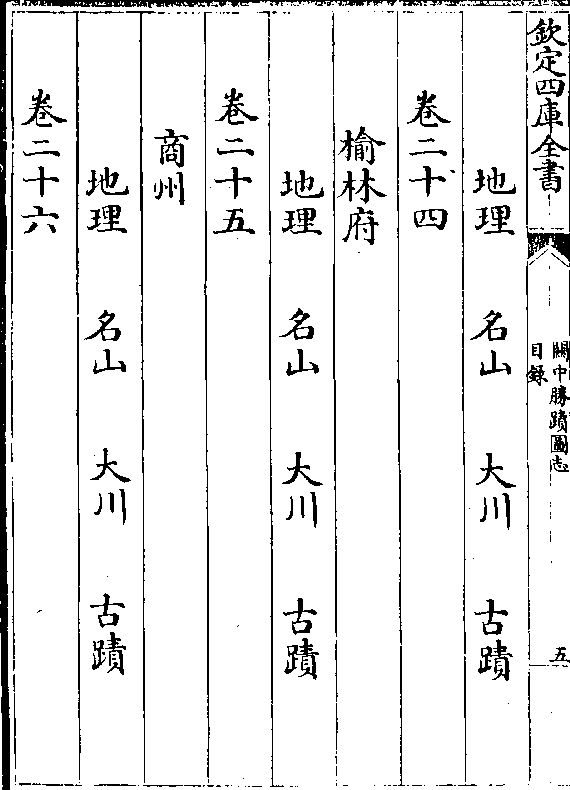 欽定四庫全書
關中勝蹟圖志
目錄
五
地理 名山 大川 古蹟
卷二十四
榆林府
地理 名山 大川 古蹟
卷二十五
商州
地理 名山 大川 古蹟
卷二十六